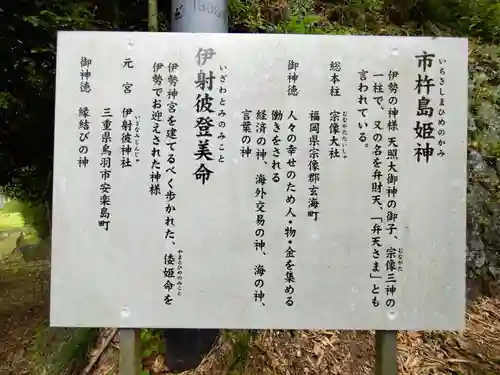 いちきしまひめのかみ
市杵島姫神
伊勢の神様 天照大御神の御子、宗像三神の
むなかた
一柱で、又の名を弁財天、「弁天さま」とも
言われている。
総本社 宗像大社
むなかたたいしゃ
福岡県宗像郡玄海町
御神徳 人々の幸せのため人・物・金を集める
働きをされる
経済の神、海外交易の神、海の神、
言葉の神
いざわとみのみこと
伊射彼登美命
伊勢神宮を建てるべく歩かれた、倭姫命を
やまとひめのみこと
伊勢でお迎えされた神様
元宮 伊射彼神社
いざわじんじゃ
三重県鳥羽市安楽島町
御神徳 縁結びの神